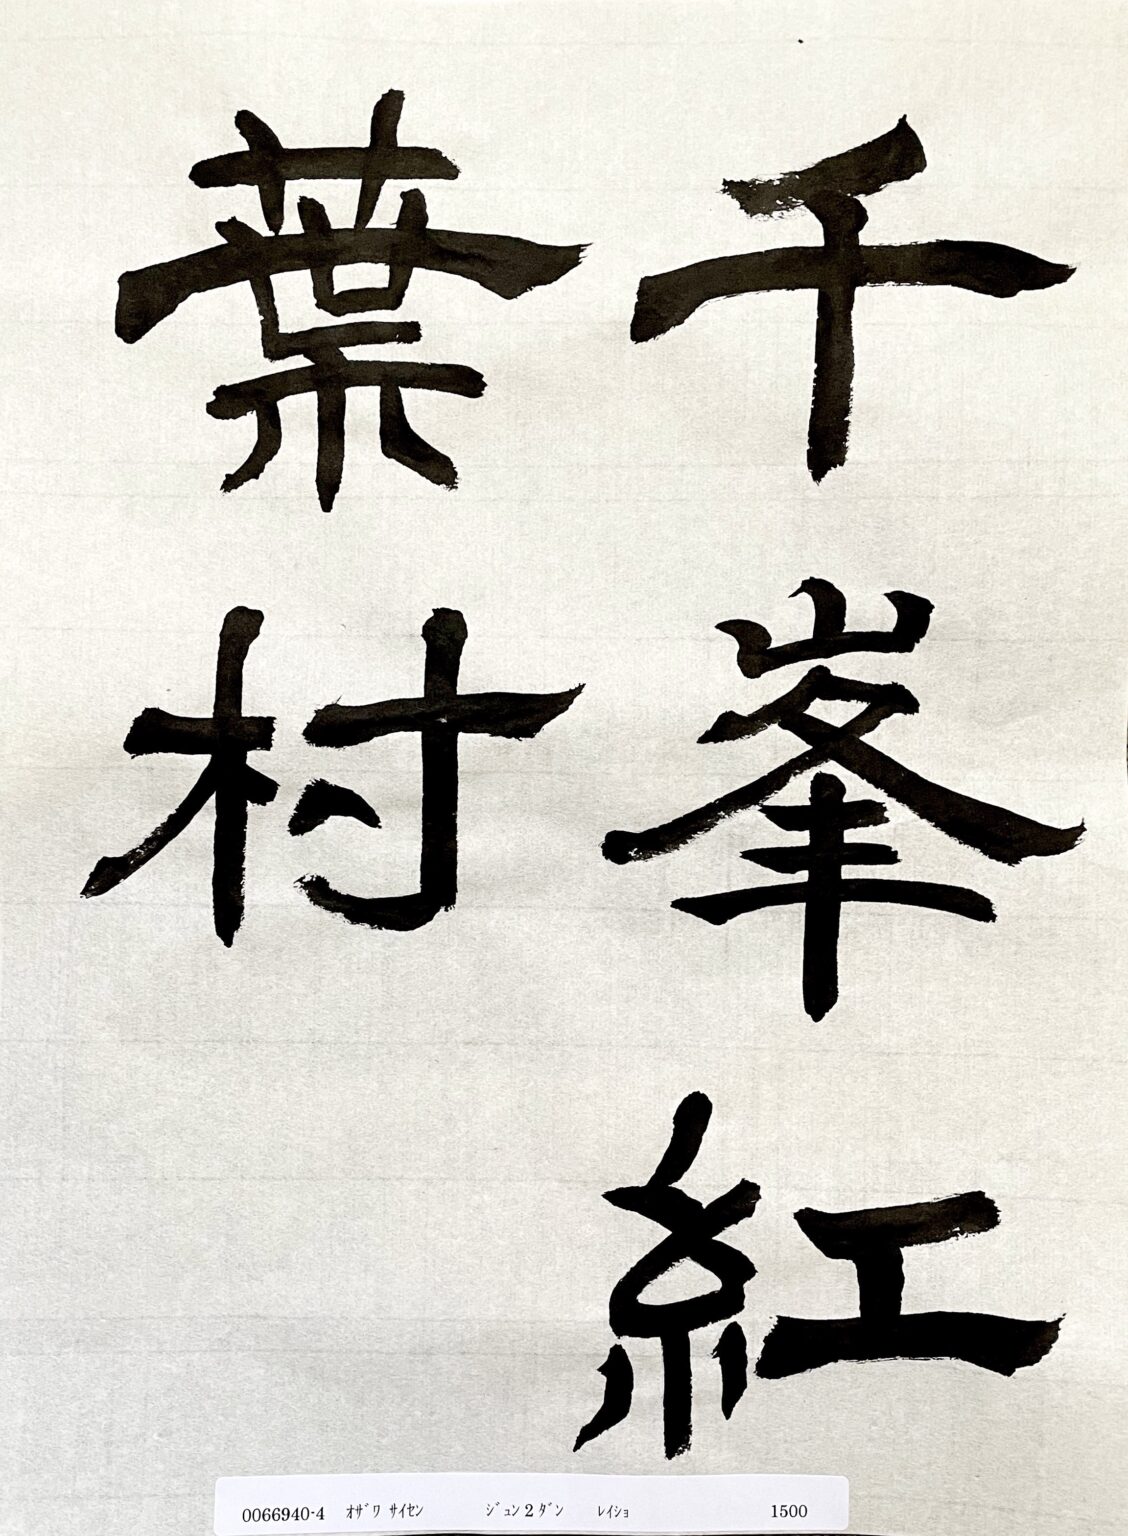 千峯紅
葉村
0066940-4 ｵｻﾞﾜ ｻｲｾﾝ ｼﾞｭﾝ2ﾀﾞﾝ ﾚｲｼｮ 1500